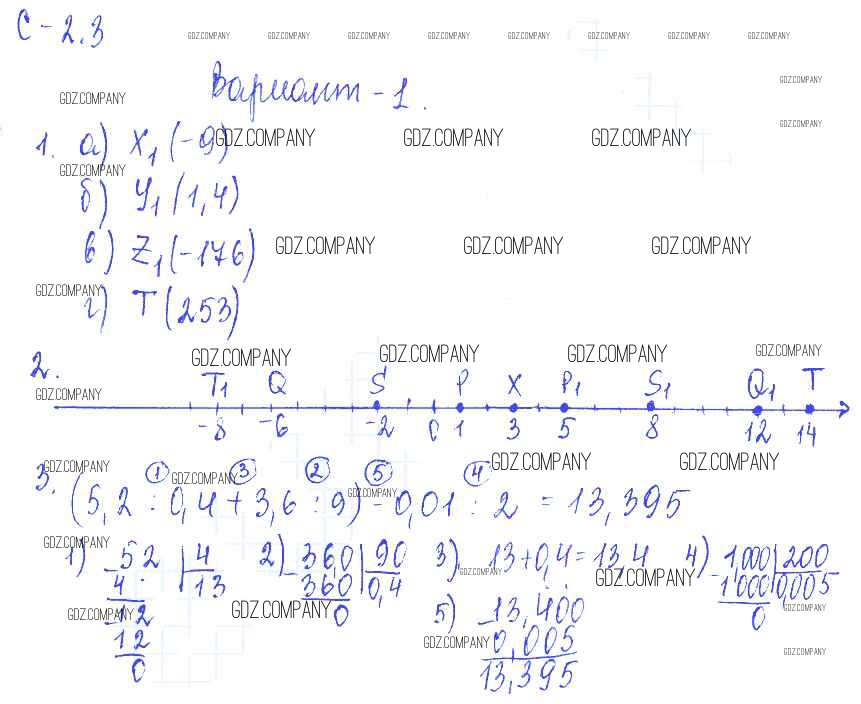 С-2.3
GDZ.COMPANY GDZ.COMPANY GDZ.COMPANY GDZ.COMPANY GDZ.COMPANY GDZ.COMPANY GDZ.COMPANY GDZ.COMPANY
Вариант-1.
GDZ.COMPANY GDZ.COMPANY
GDZ.COMPANY
1. а) X₁(-9) GDZ.COMPANY GDZ.COMPANY GDZ.COMPANY
GDZ.COMPANY
б) У₁(1,4)
в) Z₁(-176) GDZ.COMPANY GDZ.COMPANY GDZ.COMPANY
GDZ.COMPANY
г) T(253)
2. GDZ.COMPANY GDZ.COMPANY GDZ.COMPANY GDZ.COMPANY
T₁ Q S P X P₁ S₁ Q₁ T
GDZ.COMPANY
-8 -6 -2 0 1 3 5 8 12 14
GDZ.COMPANY GDZ.COMPANY GDZ.COMPANY GDZ.COMPANY
3. 1 3 2 5 4
(5,2 : 0,4 + 3,6 : 9) - 0,01 : 2 = 13,395
GDZ.COMPANY
GDZ.COMPANY
1) 52 | 4 2) 360 | 90 3) 13+0,4=13,4 4) 1,000 | 200
4 13 360 0,4 GDZ.COMPANY GDZ.COMPANY 1000 0,005
GDZ.COMPANY GDZ.COMPANY GDZ.COMPANY
12 0 5) 13,400 0
12 GDZ.COMPANY 0,005 GDZ.COMPANY
0 13,395